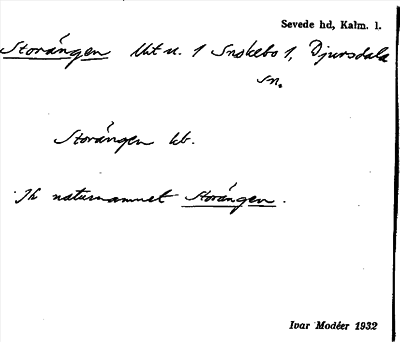 Sevede hd, Kalm. l.
Storängen Utu. 1 Snokebo 1, Djursdala
sn.
Storängen lb.
Ih naturnamnet Storängen.
Ivar Modéer 1932